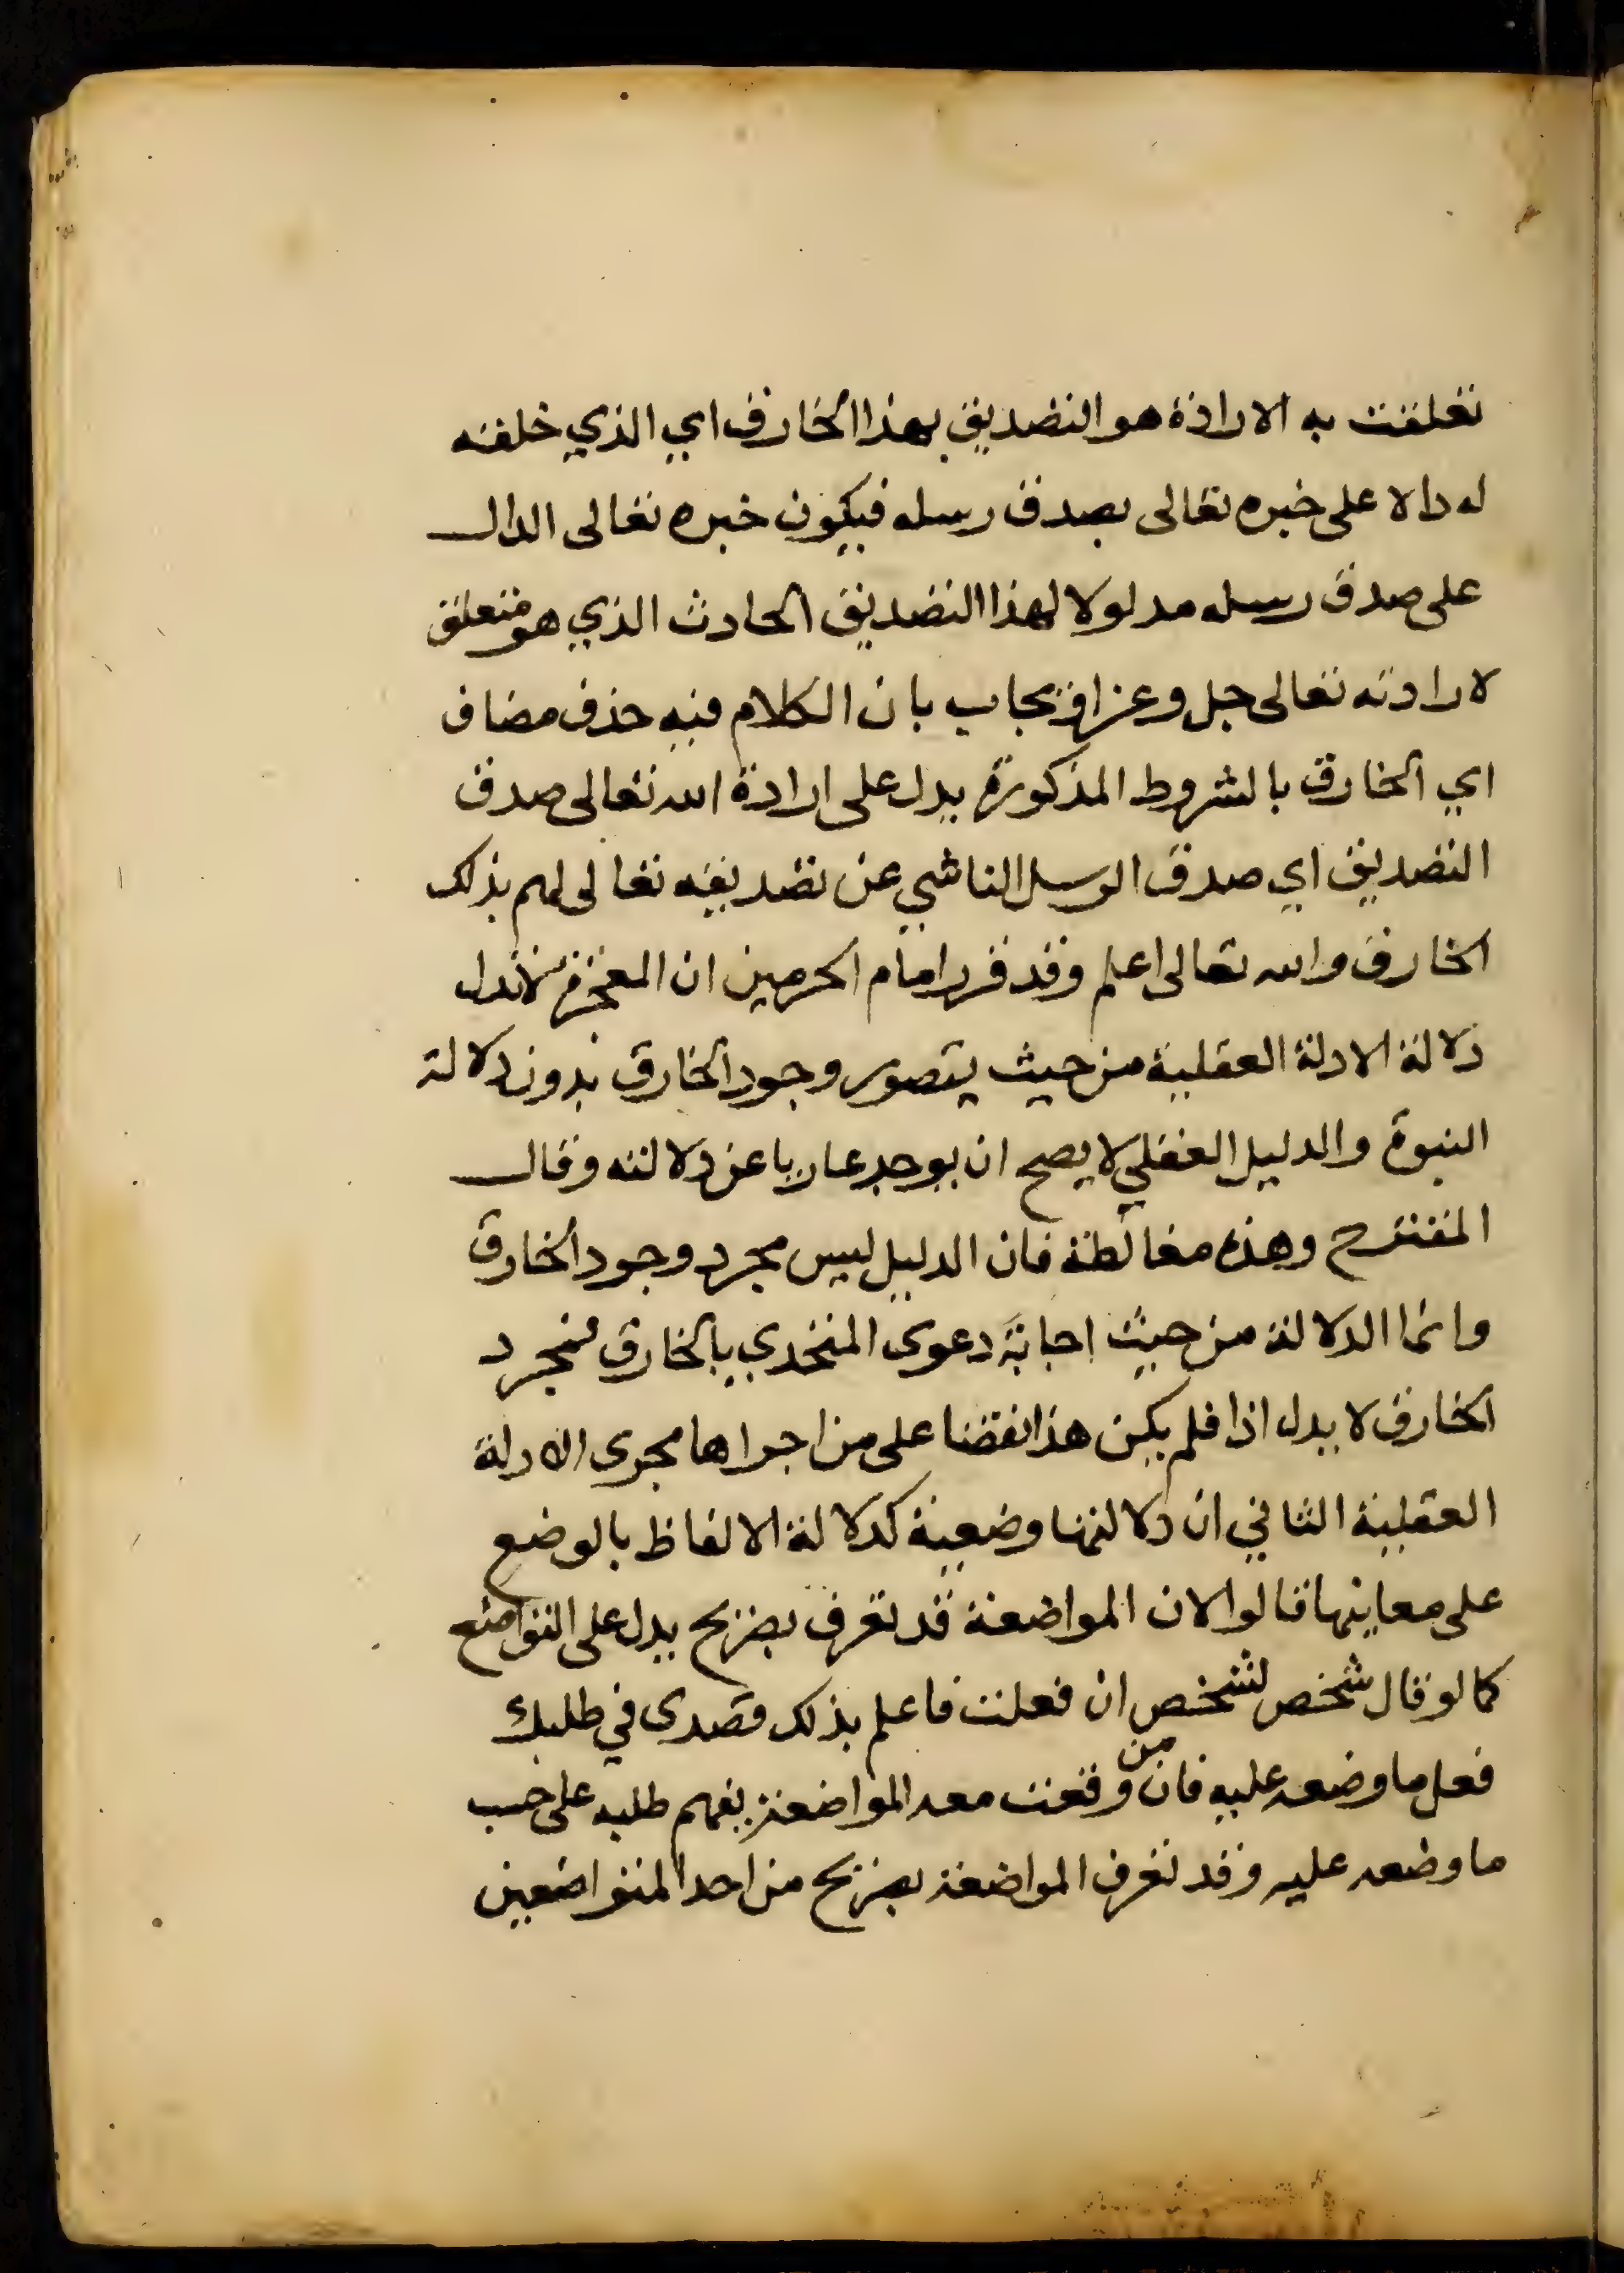 تعلقت به الارادة هو التصديق بهذا الخارق اي الذي خلقه
له دالا على خبره تعالى بصدق رسله فيكون خبره تعالى الدال
على صدق رسله مدلولا لهذا التصديق الحادث الذي هو متعلق
لارادته تعالى جل وعز او يجاب بان الكلام فيه حذف مضاف
اي الخارق بالشروط المذكورة يدل على ارادة الله تعالى صدق
التصديق اي صدق الرسل الناشي عن تصديقه تعالى لهم بذلك
الخارق والله تعالى اعلم وقد قرر امام الحرمين ان المعجزة لا تدل
دلالة الادلة العقلية من حيث يتصور وجود الخارق بدون دلالة
النبوة والدليل العقلي لا يصح ان يوجد عاريا عن دلالته وقال
المقترح وهذه مغالطة فان الدليل ليس مجرد وجود الخارق
وانما الدلالة من حيث اجابة دعوى المتحدي بالخارق فمجرد
الخارق لا يدل اذا فلم يكن هذا نقضا على من اجراها مجرى الادلة
العقلية الثاني ان دلالتها وضعية كدلالة الالفاظ بالوضع
على معاينها قالوا لان المواضعة قد تعرف بصريح يدل على التواضع
كما لو قال شخص لشخص ان فعلت فاعلم بذلك قصدى في طلبك
فعل ما وضعه عليه فان من وقعت معه المواضعة يفهم طلبه على حسب
ما وضعه عليه وقد تعرف المواضعة بصريح من احد المتواضعين